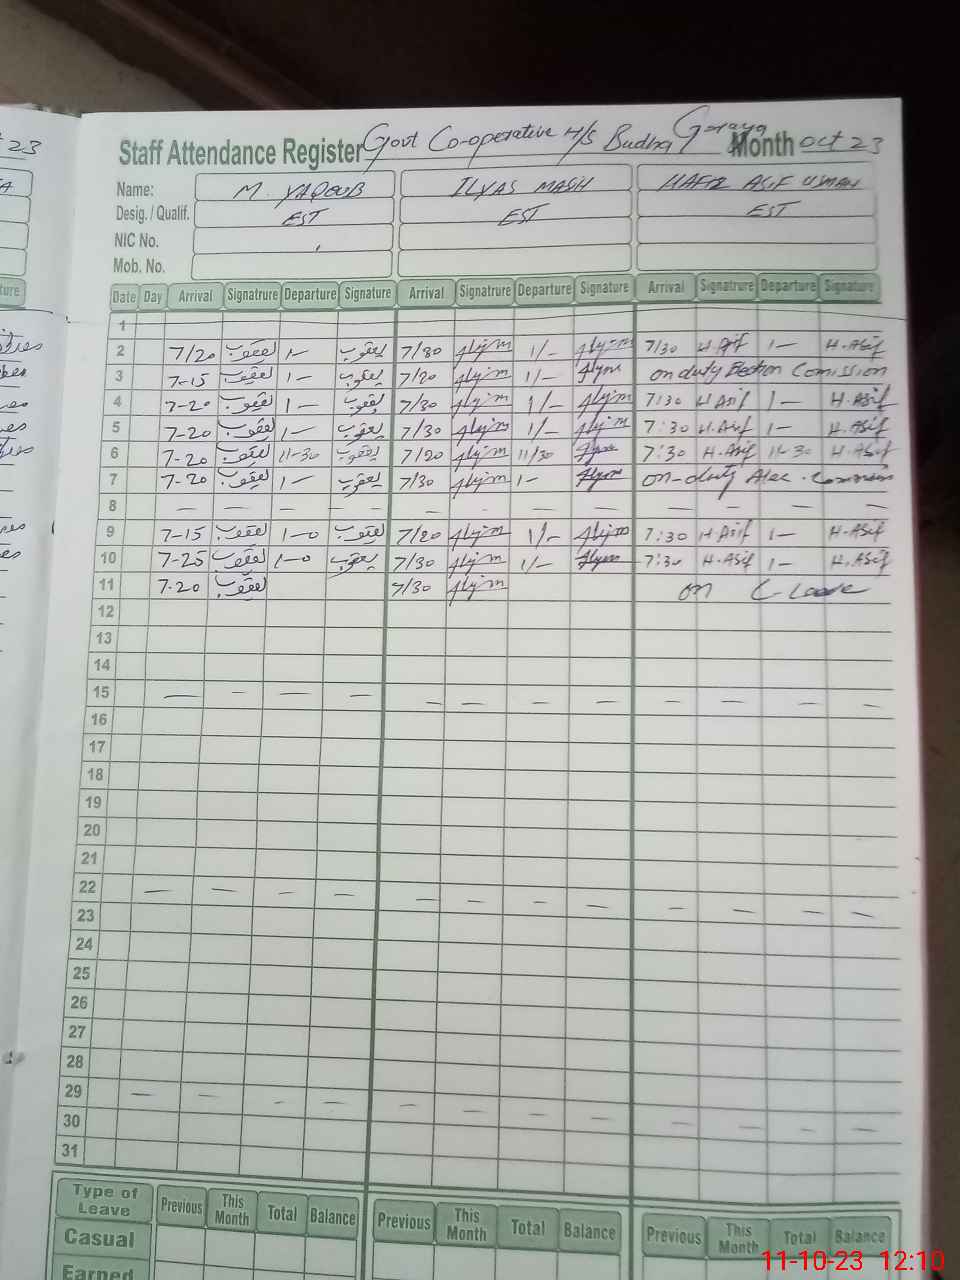 23
Staff Attendance Register Govt Co-operative H/S Budha Goraya Month Oct 23
Name: M. YAQOUB ILYAS MASIH HAFIZ ASIF USMAN
Desig. / Qualif. EST EST EST
NIC No.
Mob. No.
Date Day Arrival Signatrure Departure Signature Arrival Signatrure Departure Signature Arrival Signatrure Departure Signature
1
2 7/20 یعقوب 1— یعقوب 7/30 1/— 7/30 H.Asif 1— H.Asif
3 7-15 یعقوب 1— یعقوب 7/20 1/— on duty Election Comission
4 7-20 یعقوب 1— یعقوب 7/30 1/— 7:30 H Asif 1— H.Asif
5 7-20 یعقوب 1— یعقوب 7/30 1/— 7:30 H.Asif 1— H.Asif
6 7-20 یعقوب 11-30 یعقوب 7/20 11/30 7:30 H.Asif 11-30 H.Asif
7 7-20 یعقوب 1— یعقوب 7/30 1— on-duty Elec. Commission
8 — — — — — — — — — — — —
9 7-15 یعقوب 1-0 یعقوب 7/20 1/— 7:30 H.Asif 1— H.Asif
10 7-25 یعقوب 1-0 یعقوب 7/30 1/— 7:30 H.Asif 1— H.Asif
11 7-20 یعقوب 7/30 on C-leave
12
13
14
15 — — — — — — — — — — — —
16
17
18
19
20
21
22 — — — — — — — — — — — —
23
24
25
26
27
28
29 — — — — — — — — — — — —
30
31
Type of Leave Previous This Month Total Balance Previous This Month Total Balance Previous This Month Total Balance
Casual
Earned
11-10-23 12:10